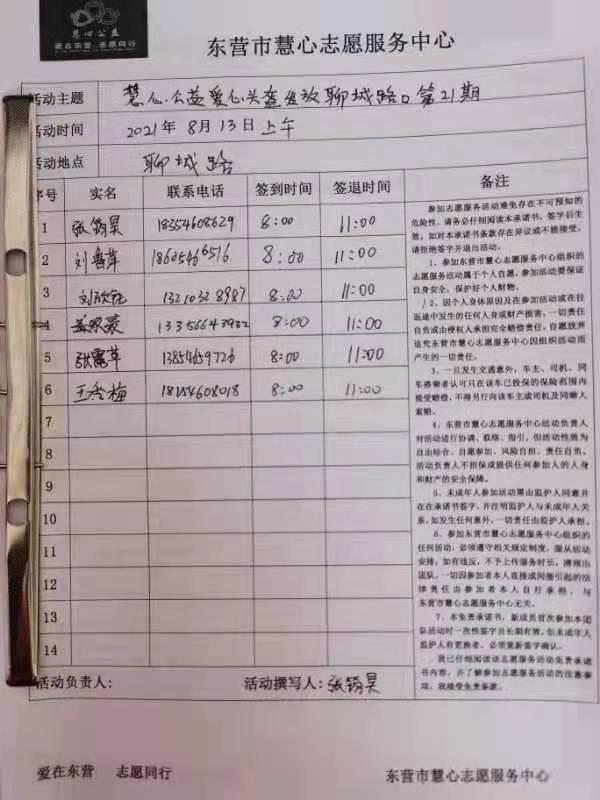 慧心公益
爱在东营 志愿同行
东营市慧心志愿服务中心
活动主题 慧心公益爱心头盔发放聊城路口第21期
活动时间 2021年8月13日上午
活动地点 聊城路
序号 实名 联系电话 签到时间 签退时间 备注
1 张锦昊 18354608629 8:00 11:00
2 刘春萍 18605466516 8:00 11:00
3 刘欣 13210328987 8:00 11:00
4 13356643932 8:00 11:00
5 张露萍 13854659726 8:00 11:00
6 王秀梅 18254608018 8:00 11:00
7
8
9
10
11
12
13
14
参加志愿服务活动难免存在不可预知的
危险性。请务必仔细阅读本承诺书，签字后生
效。如对本承诺书条款存在异议或不能接受，
请拒绝签字并退出活动。
1、参加东营市慧心志愿服务中心组织的
志愿服务活动属于个人自愿。参加活动要保证
自身安全、保护好个人财物。
2、因个人身体原因及在参加活动或在往
返途中发生的任何人身或财产损害，一切责任
自负或由侵权人承担完全赔偿责任，自愿放弃
追究东营市慧心志愿服务中心因组织活动而
产生的一切责任。
3、一旦发生交通意外，车主、司机、同
车搭乘者认可只在该车已投保的保险范围内
接受赔偿，不得另行向该车主或司机及同乘人
索赔。
4、东营市慧心志愿服务中心活动负责人
对活动进行协调、联络、指引，但活动性质为
自由结合、自愿参加、风险自担、责任自负。
活动负责人不担保或提供任何参加人的人身
和财产的安全保障。
5、未成年人参加活动需由监护人同意并
在在承诺书签字，并注明监护人与未成年人关
系，如发生任何意外，一切责任由监护人承担。
6、参加东营市慧心志愿服务中心组织的
任何活动，必须遵守相关规定制度，服从活动
安排，如有违反，不予上传服务时长，清理出
团队。一切因参加者本人直接或间接引起的法
律责任由参加者本人自行承担，与
东营市慧心志愿服务中心无关。
7、本免责承诺书，新成员首次参加本团
队活动时一次性签字且长期有效。但未成年人
监护人有更换者，必须重新签字确认。
我已仔细阅读该志愿服务活动免责承诺
书内容，并了解参加志愿服务活动的注意事
项，我接受免责条款。
活动负责人： 活动撰写人：张锦昊
爱在东营 志愿同行 东营市慧心志愿服务中心